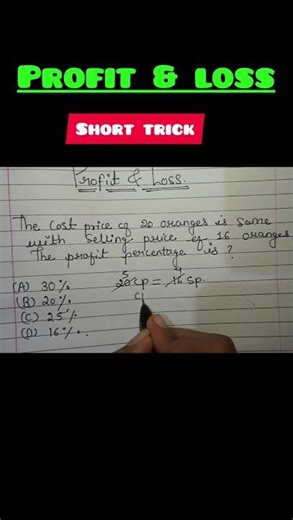 PROFIT & LOSS
SHORT TRICK
Profit & Loss.
The Cost price of 20 oranges is same
with selling price of 16 oranges
The profit percentage is ?
(A) 30%
(B) 20%
(C) 25%
(D) 16%.
5 4
20 CP = 16 SP.
C